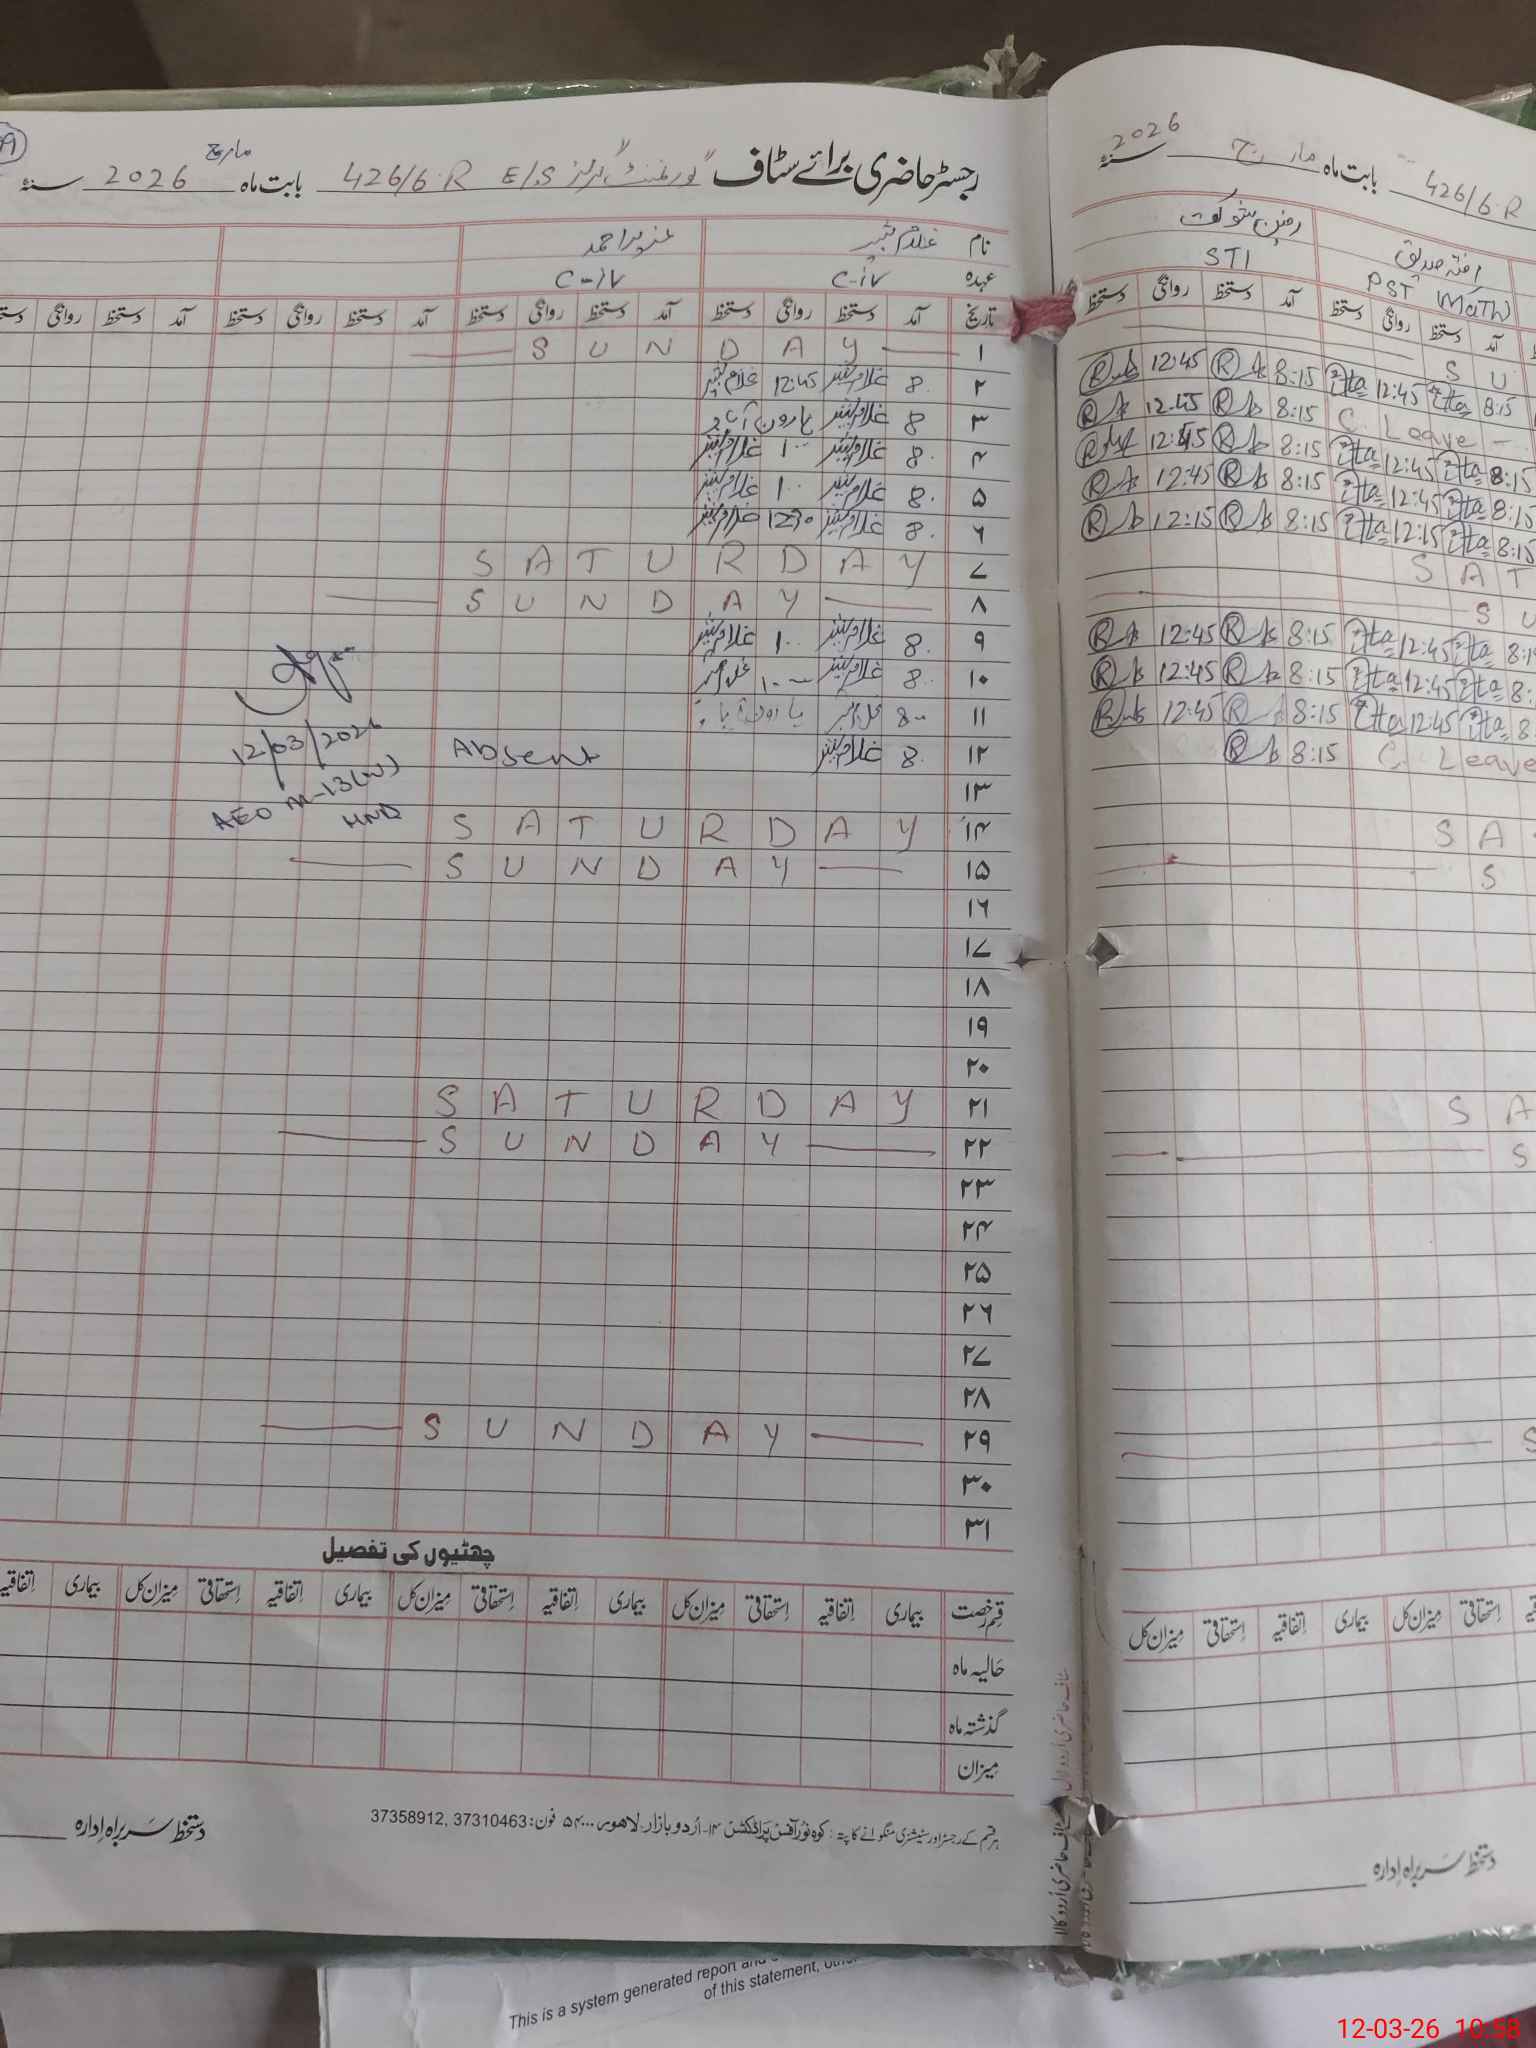 رجسٹر حاضری برائے سٹاف گورنمنٹ گرلز E/S 426/6.R بابت ماہ مارچ سنہ 2026
نام غلام شبیر عزیر احمد
عہدہ C-iv C-iv
تاریخ آمد دستخط روانگی دستخط آمد دستخط روانگی دستخط آمد دستخط روانگی دستخط آمد دستخط روانگی
۱ SUNDAY
۲ 8. غلام شبیر 12:45 غلام شبیر
۳ 8 غلام شبیر ہارون آباد
۴ 8. غلام شبیر 1.. غلام شبیر
۵ 8. غلام شبیر 1.. غلام شبیر
۶ 8. غلام شبیر 1230 غلام شبیر
۷ SATURDAY
۸ SUNDAY
۹ 8. غلام شبیر 1.. غلام شبیر
۱۰ 8.. غلام شبیر 1.. غلام شبیر
۱۱ 8.. غلام شبیر
۱۲ 8. غلام شبیر Absent
12/03/2026
AEO M-13(W)
HND
۱۳
۱۴ SATURDAY
۱۵ SUNDAY
۱۶
۱۷
۱۸
۱۹
۲۰
۲۱ SATURDAY
۲۲ SUNDAY
۲۳
۲۴
۲۵
۲۶
۲۷
۲۸
۲۹ SUNDAY
۳۰
۳۱
چھٹیوں کی تفصیل
قسم رخصت بیماری اتفاقیہ استحقاقی میزان کل بیماری اتفاقیہ استحقاقی میزان کل بیماری اتفاقیہ استحقاقی میزان کل بیماری اتفاقیہ
حالیہ ماہ
گذشتہ ماہ
میزان
ہر قسم کے رجسٹر اور سٹیشنری منگوانے کا پتہ: کوہ نور آفس پراڈکٹس ۱۴-اردو بازار۔لاہور ۵۴۰۰۰ فون: 37310463, 37358912
دستخط سربراہ ادارہ
426/6.R بابت ماہ مارچ سنہ 2026
صدیق
PST (MATH) STI
آمد دستخط روانگی دستخط آمد دستخط روانگی دستخط
S U
8:15 12:45 8:15 12:45
C. Leave 8:15 12.45
8:15 12:45 8:15 12:45
8:15 12:45 8:15 12:45
8:15 12:15 8:15 12:15
S A T
S U
8:15 12:45 8:15 12:45
8: 12:45 8:15 12:45
8: 12:45 8:15 12:45
C. Leave 8:15
S A
S
S A
S
S
میزان کل استحقاقی اتفاقیہ بیماری میزان کل استحقاقی
دستخط سربراہ ادارہ
This is a system generated report and
of this statement,
12-03-26 10:58